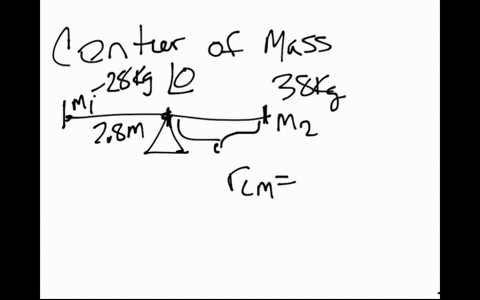 Center of Mass
M1 -28kg 0 38kg
2.8m M2
rCM=